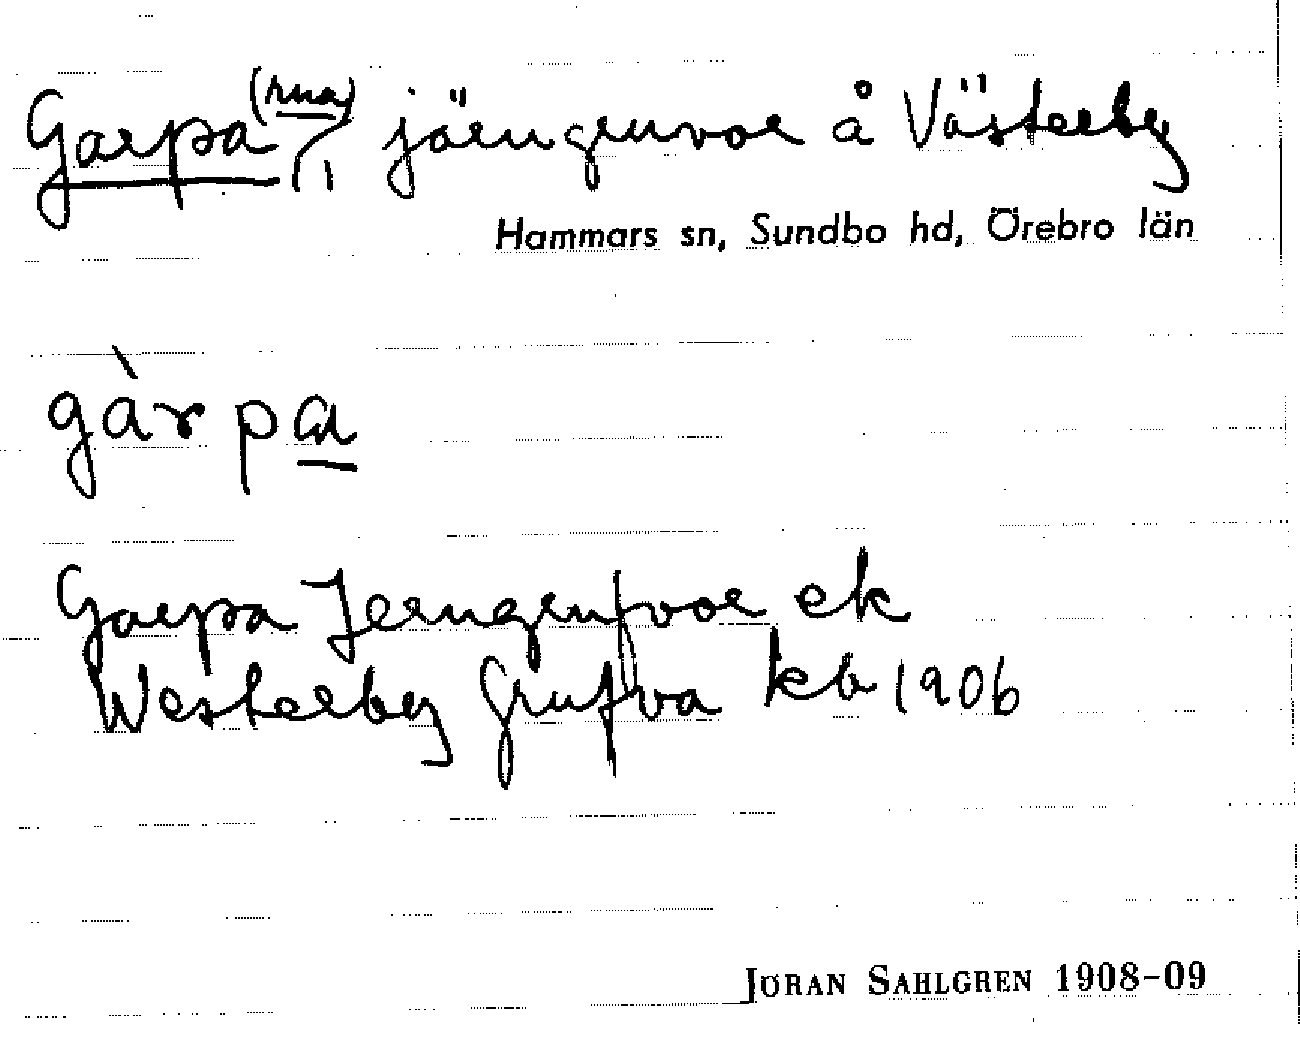 Garpa(rna) järngruvor å Västerby
Hammars sn, Sundbo hd, Örebro län
gàrpa
Garpa Jerngrufvor ek
Westerby Grufva kb 1906
JÖRAN SAHLGREN 1908-09